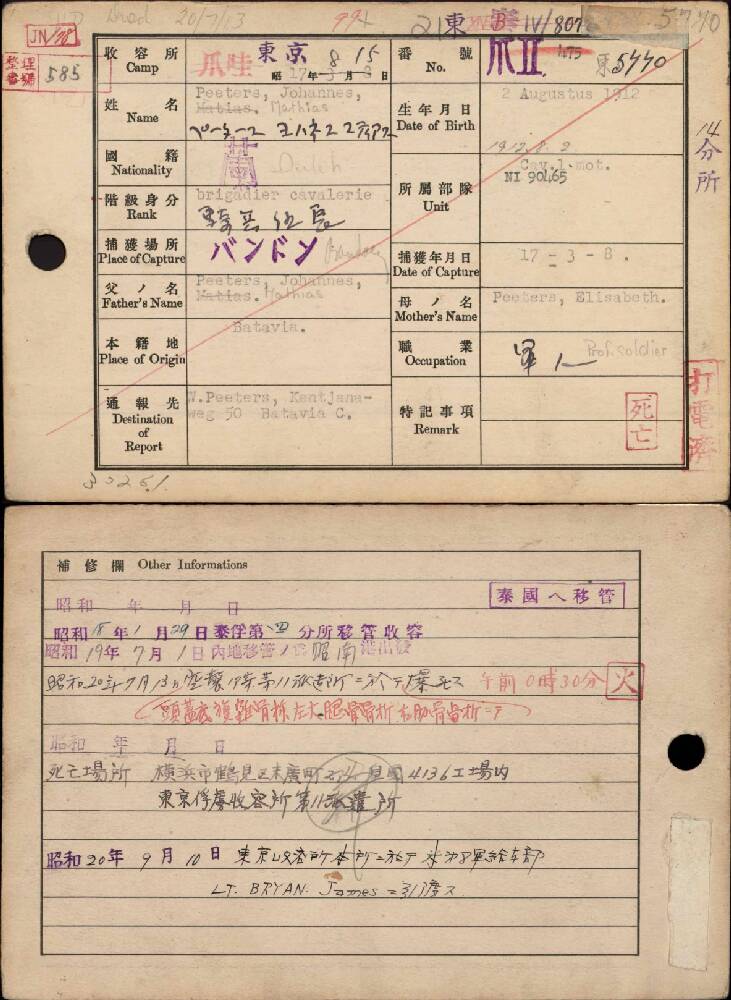 Dead 20/7/13
994
21 東 IV/807
5770
JN/38
整理番号 585
收容所 Camp
爪哇 東京
昭 17年3月8日 8 15
番號 No.
爪II. 475 東5770
姓名 Name
Peeters, Johannes,
Matias. Mathias
ペーテース ヨハネス マティアス
生年月日 Date of Birth
2 Augustus 1912
1912. 8. 2.
14分所
國籍 Nationality
蘭 Dutch
所屬部隊 Unit
Cav.1.mot.
NI 90465
階級身分 Rank
brigadier cavalerie
騎兵伍長
捕獲場所 Place of Capture
バンドン Bandoeng
捕獲年月日 Date of Capture
17 - 3 - 8.
父ノ名 Father's Name
Peeters, Johannes,
Matias. Mathias
母ノ名 Mother's Name
Peeters, Elisabeth.
本籍地 Place of Origin
Batavia.
職業 Occupation
軍人 Prof. soldier
通報先 Destination of Report
W.Peeters, Kentjana-
weg 50 Batavia C.
特記事項 Remark
死亡
打電濟
補修欄 Other Informations
泰國へ移管
昭和 年 月 日
昭和18年1月29日泰俘第四分所移管收容
昭和19年7月1日內地移管ノ爲昭南港出發
昭和20年7月13日空襲ノ際第11派遣所ニ於テ爆死ス 午前0時30分 火
頭蓋底複雜骨折左大腿骨骨折右肋骨骨折ニテ
昭和 年 月 日
死亡場所 横浜市鶴見区末廣町 4136工場内
東京俘虜收容所第11派遣所
昭和20年9月10日 東京収容所本所ニ於テ米第8軍
LT. BRYAN. James ニ引渡ス